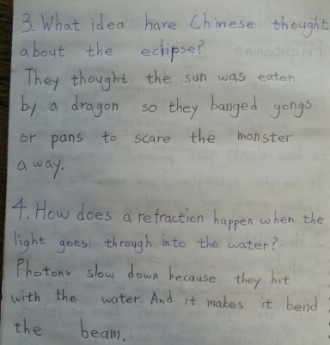 3. What idea have Chinese thought
about the eclipse?
They thought the sun was eaten
by a dragon so they banged gongs
or pans to scare the monster
away.
4. How does a refraction happen when the
light goes through into the water?
Photons slow down because they hit
with the water. And it makes it bend
the beam.